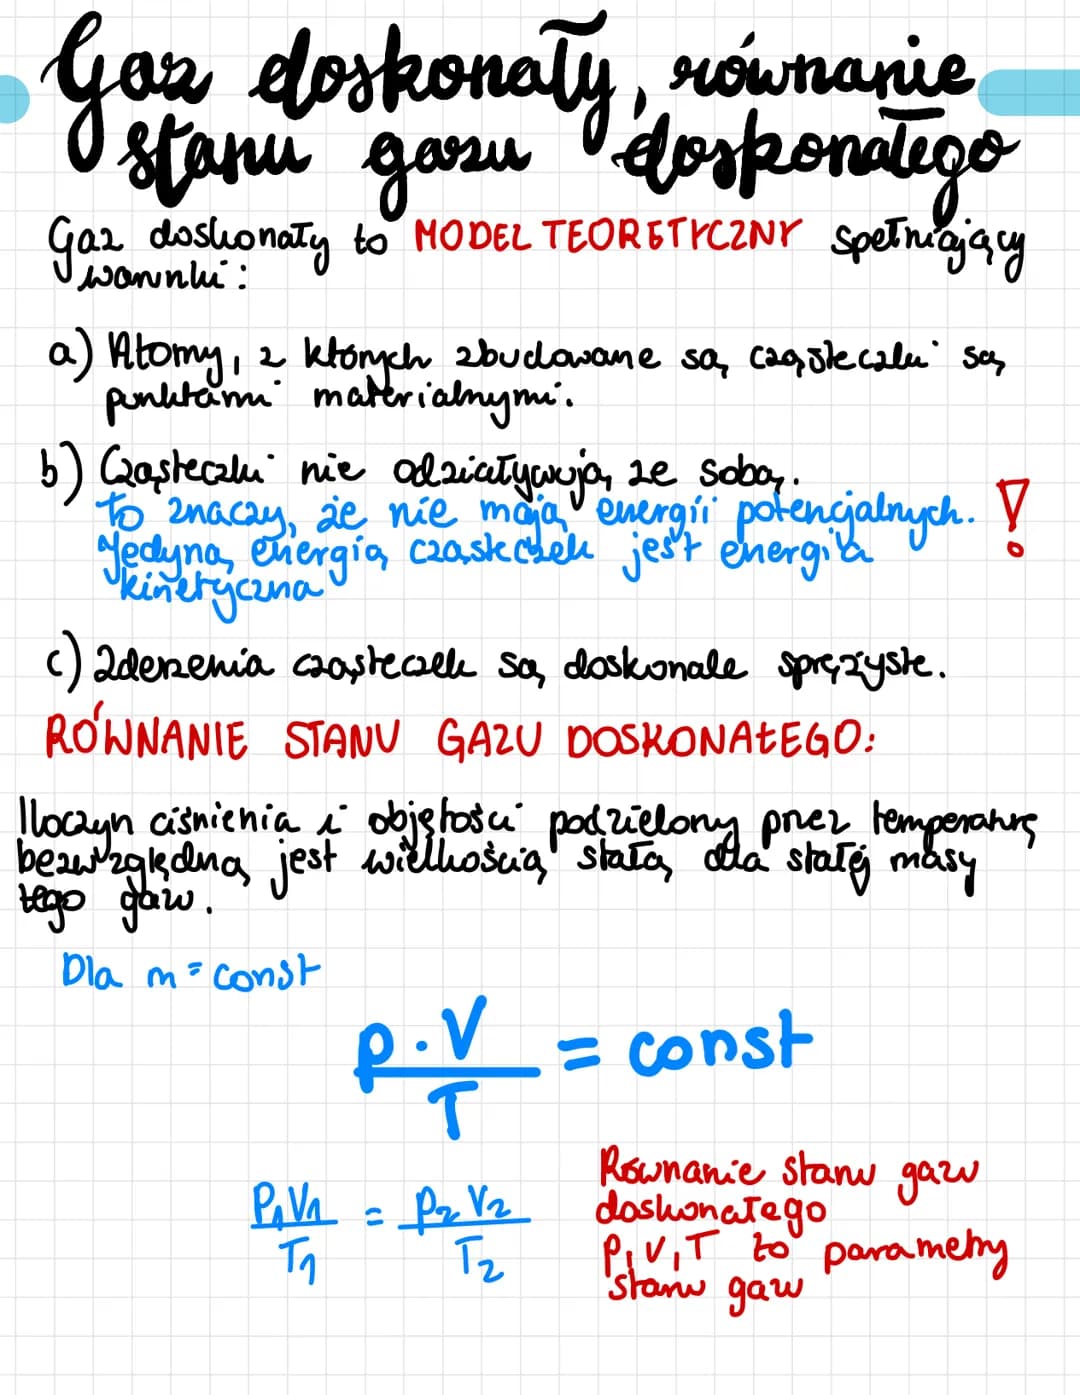 Gaz doskonały, równanie
stanu gazu doskonałego
Gaz doskonały to MODEL TEORETYCZNY spełniający
warunki:
a) Atomy, z których zbudowane są cząsteczki są
punktami materialnymi.
b) Cząsteczki nie odziaływują ze sobą.
to znaczy, że nie mają energii potencjalnych. !
Jedyną energią cząsteczek jest energia
kinetyczna
c) Zderzenia cząsteczek są doskonale sprężyste.
RÓWNANIE STANU GAZU DOSKONAŁEGO:
Iloczyn ciśnienia i objętości podzielony przez temperaturę
bezwzględną jest wielkością stałą dla stałej masy
tego gazu.
Dla m = const
p · V / T = const
p₁V₁ / T₁ = p₂V₂ / T₂
Równanie stanu gazu
doskonałego
p, V, T to parametry
stanu gazu